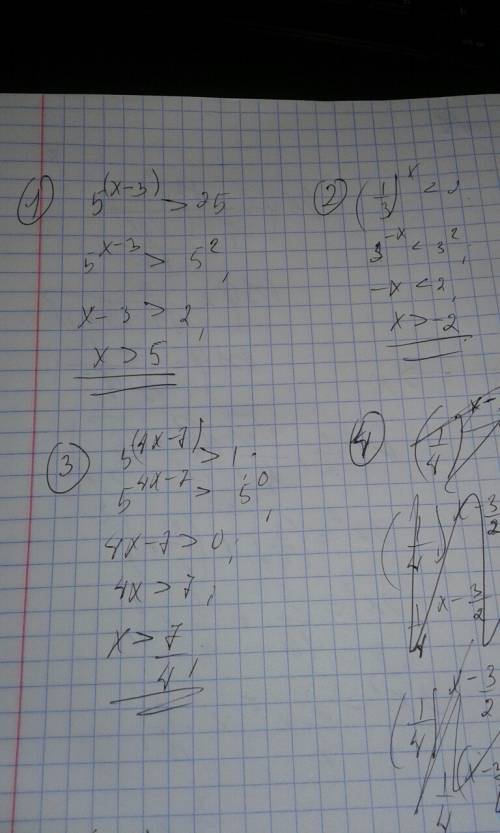 ① 5^(x-3) > 25
5^x-3 > 5^2,
x-3 > 2,
x > 5
② (1/3)^x <
3^-x < 3^2,
-x < 2,
x > -2
③ 5^(4x-7) > 1.
5^4x-7 > 5^0,
4x-7 > 0;
4x > 7;
x > 7/4,
④ (1/4)^x-
(1/4)^x-3/2
1/4 x-3/2
(1/4)^x-3/2
1/4